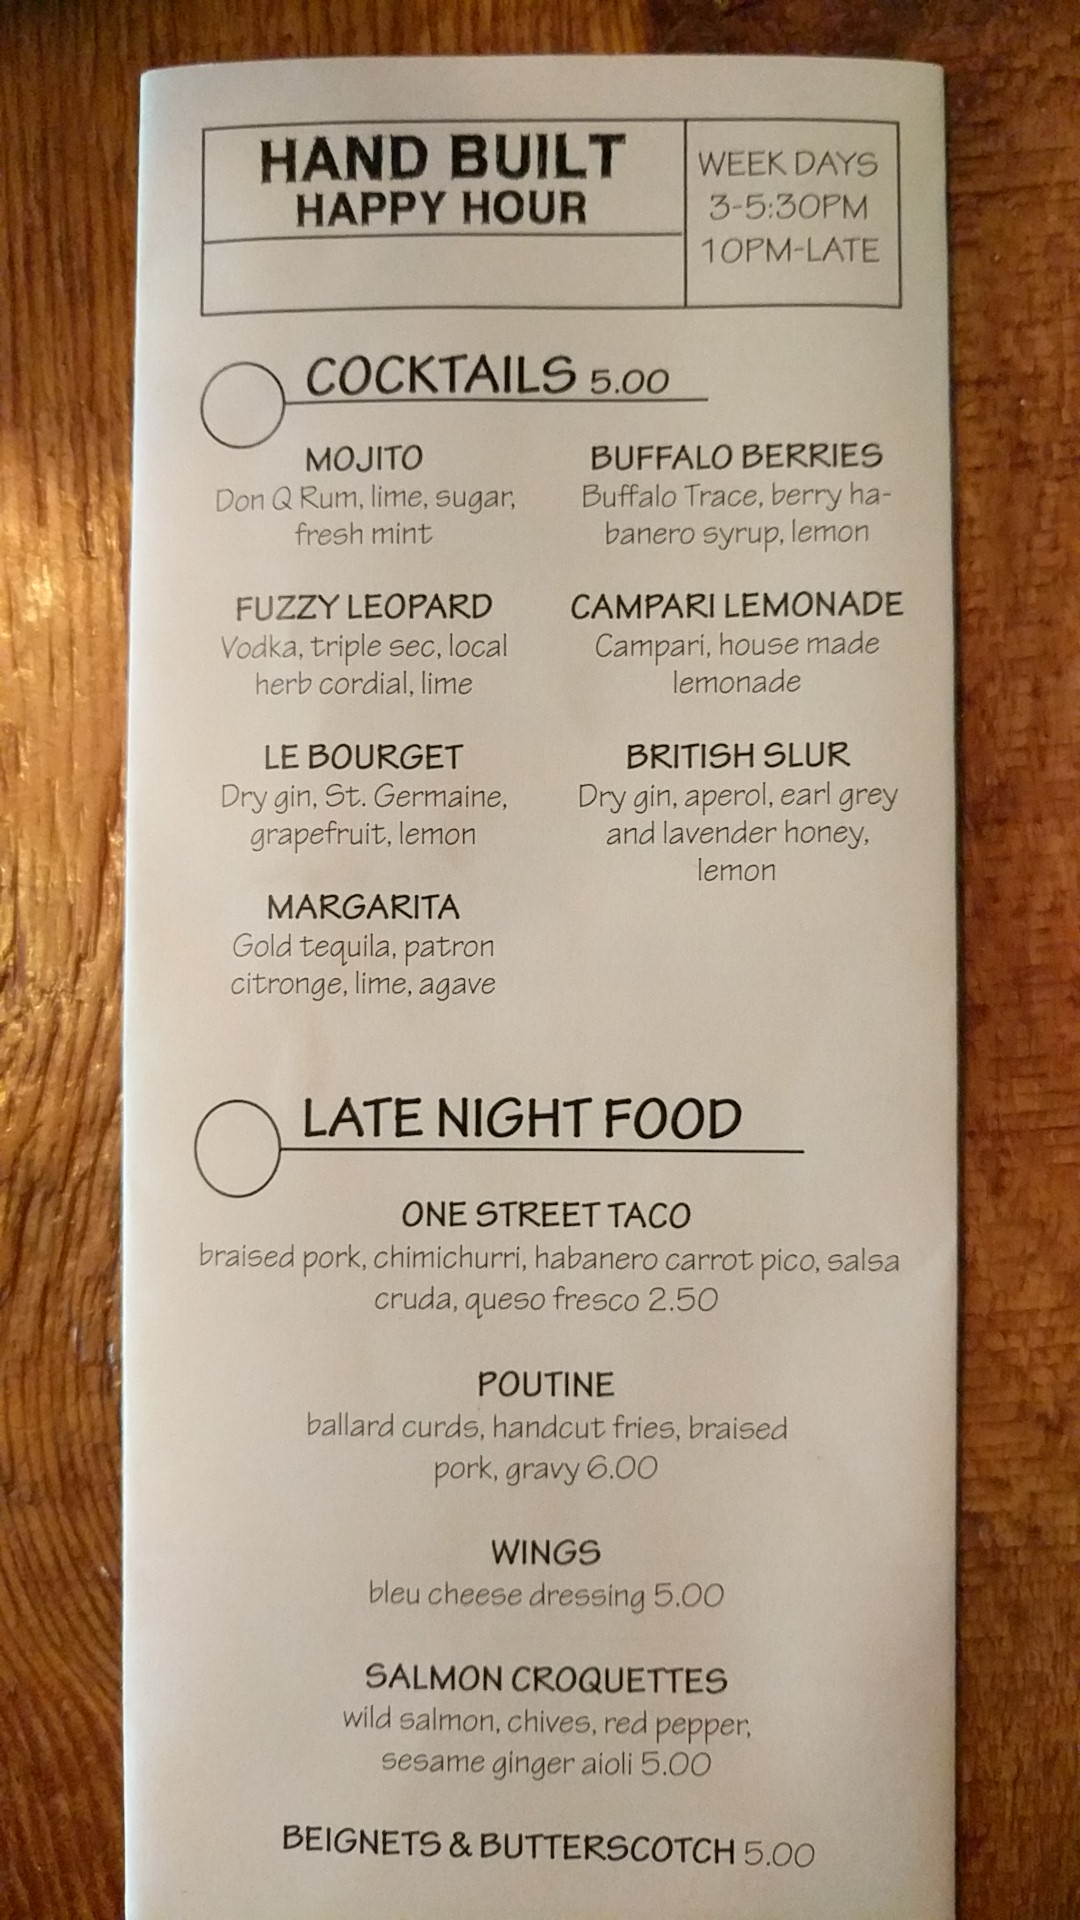 HAND BUILT
HAPPY HOUR
WEEK DAYS
3-5:30PM
10PM-LATE
COCKTAILS 5.00
MOJITO
Don Q Rum, lime, sugar,
fresh mint
BUFFALO BERRIES
Buffalo Trace, berry ha-
banero syrup, lemon
FUZZY LEOPARD
Vodka, triple sec, local
herb cordial, lime
CAMPARI LEMONADE
Campari, house made
lemonade
LE BOURGET
Dry gin, St. Germaine,
grapefruit, lemon
BRITISH SLUR
Dry gin, aperol, earl grey
and lavender honey,
lemon
MARGARITA
Gold tequila, patron
citronge, lime, agave
LATE NIGHT FOOD
ONE STREET TACO
braised pork, chimichurri, habanero carrot pico, salsa
cruda, queso fresco 2.50
POUTINE
ballard curds, handcut fries, braised
pork, gravy 6.00
WINGS
bleu cheese dressing 5.00
SALMON CROQUETTES
wild salmon, chives, red pepper,
sesame ginger aioli 5.00
BEIGNETS & BUTTERSCOTCH 5.00